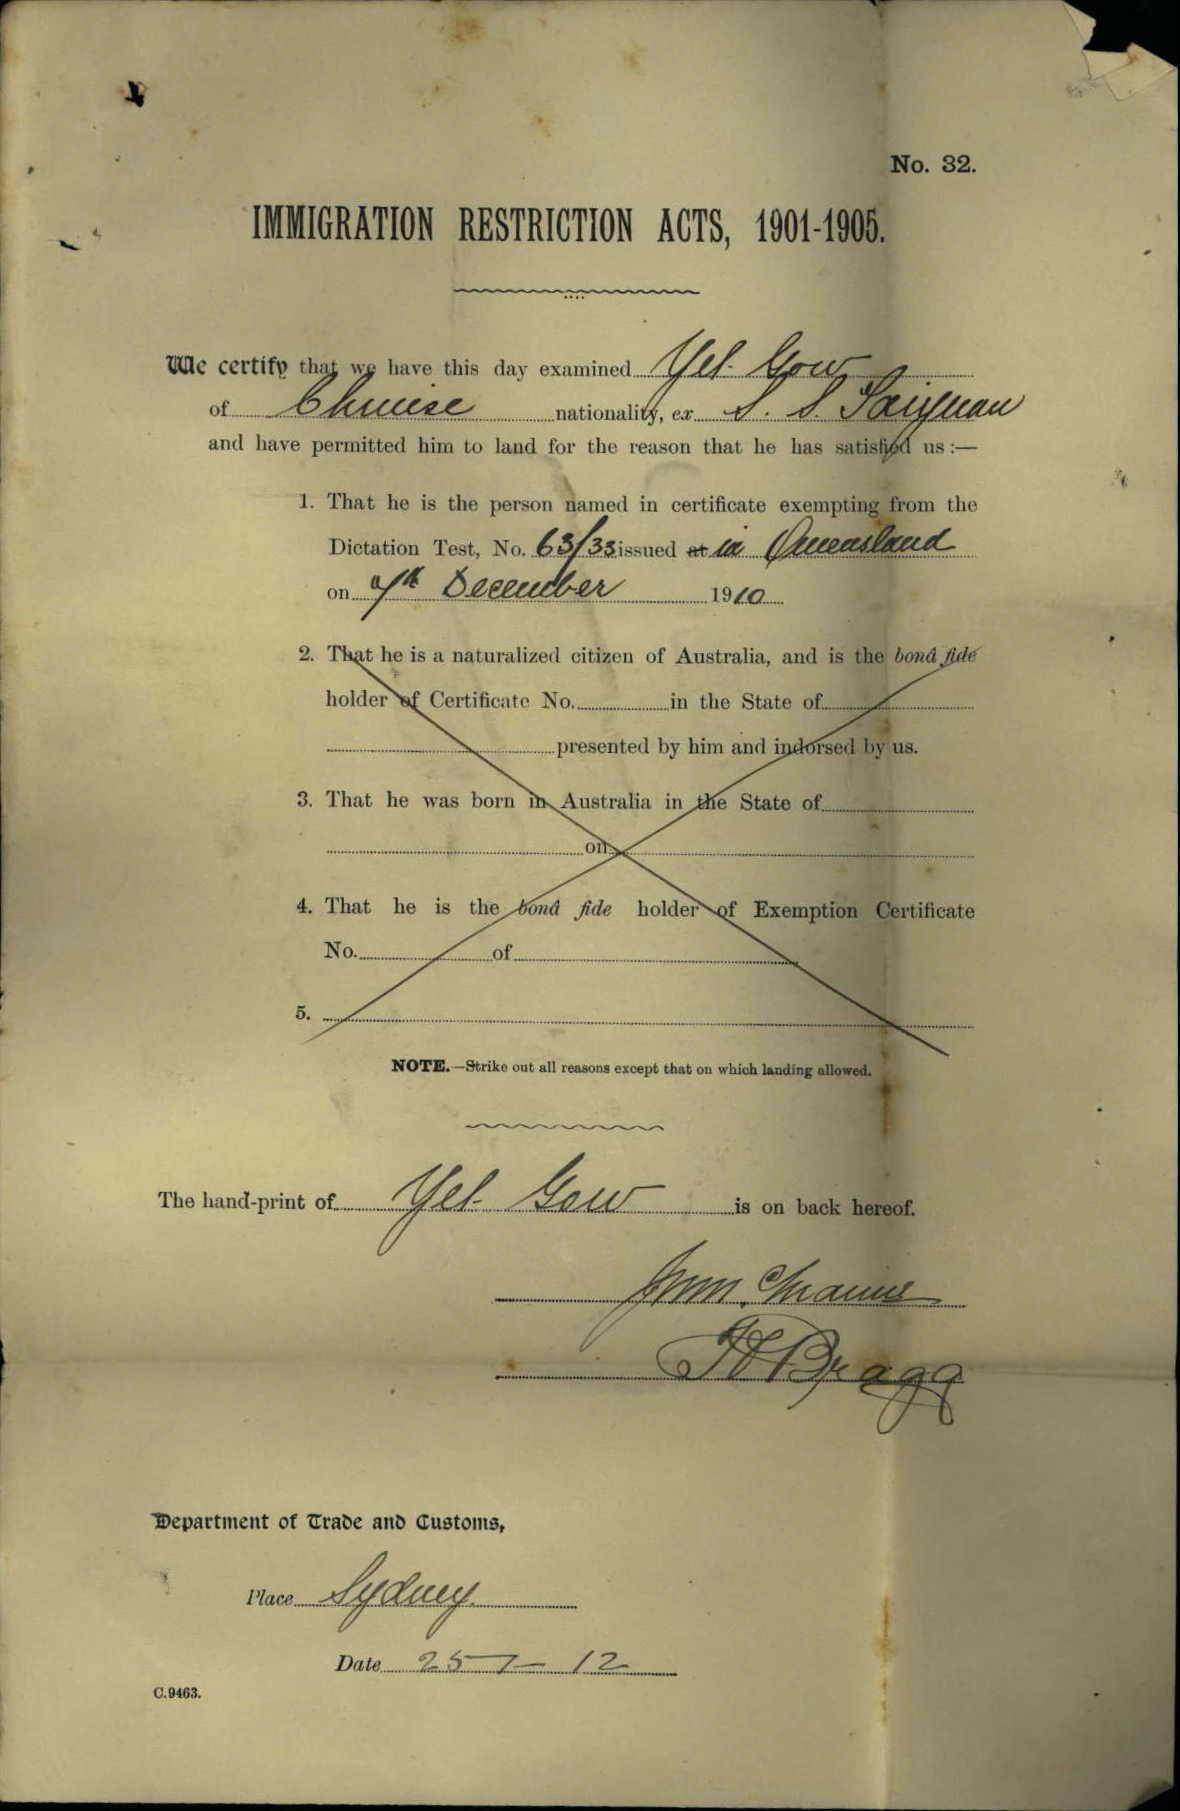 No. 32.
IMMIGRATION RESTRICTION ACTS, 1901-1905.
We certify that we have this day examined Yet Gow
of Chinese nationality, ex S. S. Taiyuan
and have permitted him to land for the reason that he has satisfied us :—
1. That he is the person named in certificate exempting from the
Dictation Test, No. 63/33 issued at in Queensland
on 7th December 1910
2. That he is a naturalized citizen of Australia, and is the bonâ fide
holder of Certificate No. in the State of
presented by him and indorsed by us.
3. That he was born in Australia in the State of
on
4. That he is the bonâ fide holder of Exemption Certificate
No. of
5.
NOTE.—Strike out all reasons except that on which landing allowed.
The hand-print of Yet Gow is on back hereof.
Bragg
Department of Trade and Customs,
Place Sydney.
Date 25 – 12
C.9463.